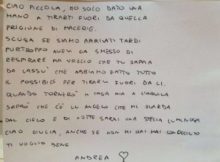 CIAO PICCOLA, HO SOLO DATO UNA
MANO A TIRARTI FUORI DA QUELLA
PRIGIONE DI MACERIE.
SCUSA SE SIAMO ARRIVATI TARDI
PURTROPPO AVEVI GIÀ SMESSO DI
RESPIRARE MA VOGLIO CHE TU SAPPIA
DA LASSÙ CHE ABBIAMO FATTO TUTTO
IL POSSIBILE PER TIRARVI FUORI DA LÌ.
QUANDO TORNERÒ A CASA MIA A L'AQUILA
SAPRÒ CHE C'È UN ANGELO CHE MI GUARDA
DAL CIELO E DI NOTTE SARAI UNA STELLA LUMINOSA
CIAO GIULIA, ANCHE SE NON MI HAI MAI CONOSCIUTO
TI VOGLIO BENE
ANDREA